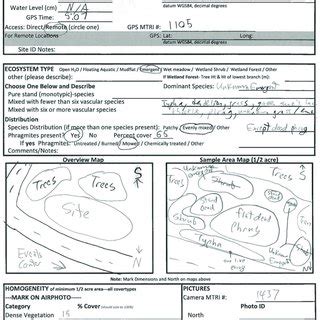 datum WGS84, decimal degrees
Water Level (cm) N/A
GPS Time: 5:07 GPS MTRI #: 1105
Access: Direct/Remote (circle one) datum WGS84, decimal degrees
For Remote Locations GPS: Lat: Long:
Site ID Notes:
ECOSYSTEM TYPE Open H₂O / Floating Aquatic / Mudflat / Emergent / Wet meadow / Wetland Shrub / Wetland Forest / Other
other (please describe): If Wetland Forest- Tree Ht & Ht of lowest branch (m):
Choose One Below and Describe Dominant Species: Unknown Emergent
Pure stand (monotypic)-species
Mixed with fewer than six vascular species
Mixed with six or more vascular species
Distribution
Species Distribution (if more than one species present): Patchy / Evenly mixed / Other Except dead phrag
Phragmites present? Yes / No Percent cover 65
If yes Phragmites: Unburned / Burned / Mowed / Chemically treated / Other
Comments/Notes:
Overview Map
Sample Area Map (1/2 acre)
Trees
Trees
Trees
Site
N
Unknown Emergent
Shrub
Shrub
Stand dead
flat dead phrag
Shrub
Typha
N
Note: Mark Dimensions and North on maps above
HOMOGENEITY of minimum 1/2 acre area--all covertypes
PICTURES
---MARK ON AIRPHOTO--- Camera MTRI #: 1437
% Cover Photo ID
Dense Vegetation 15
North